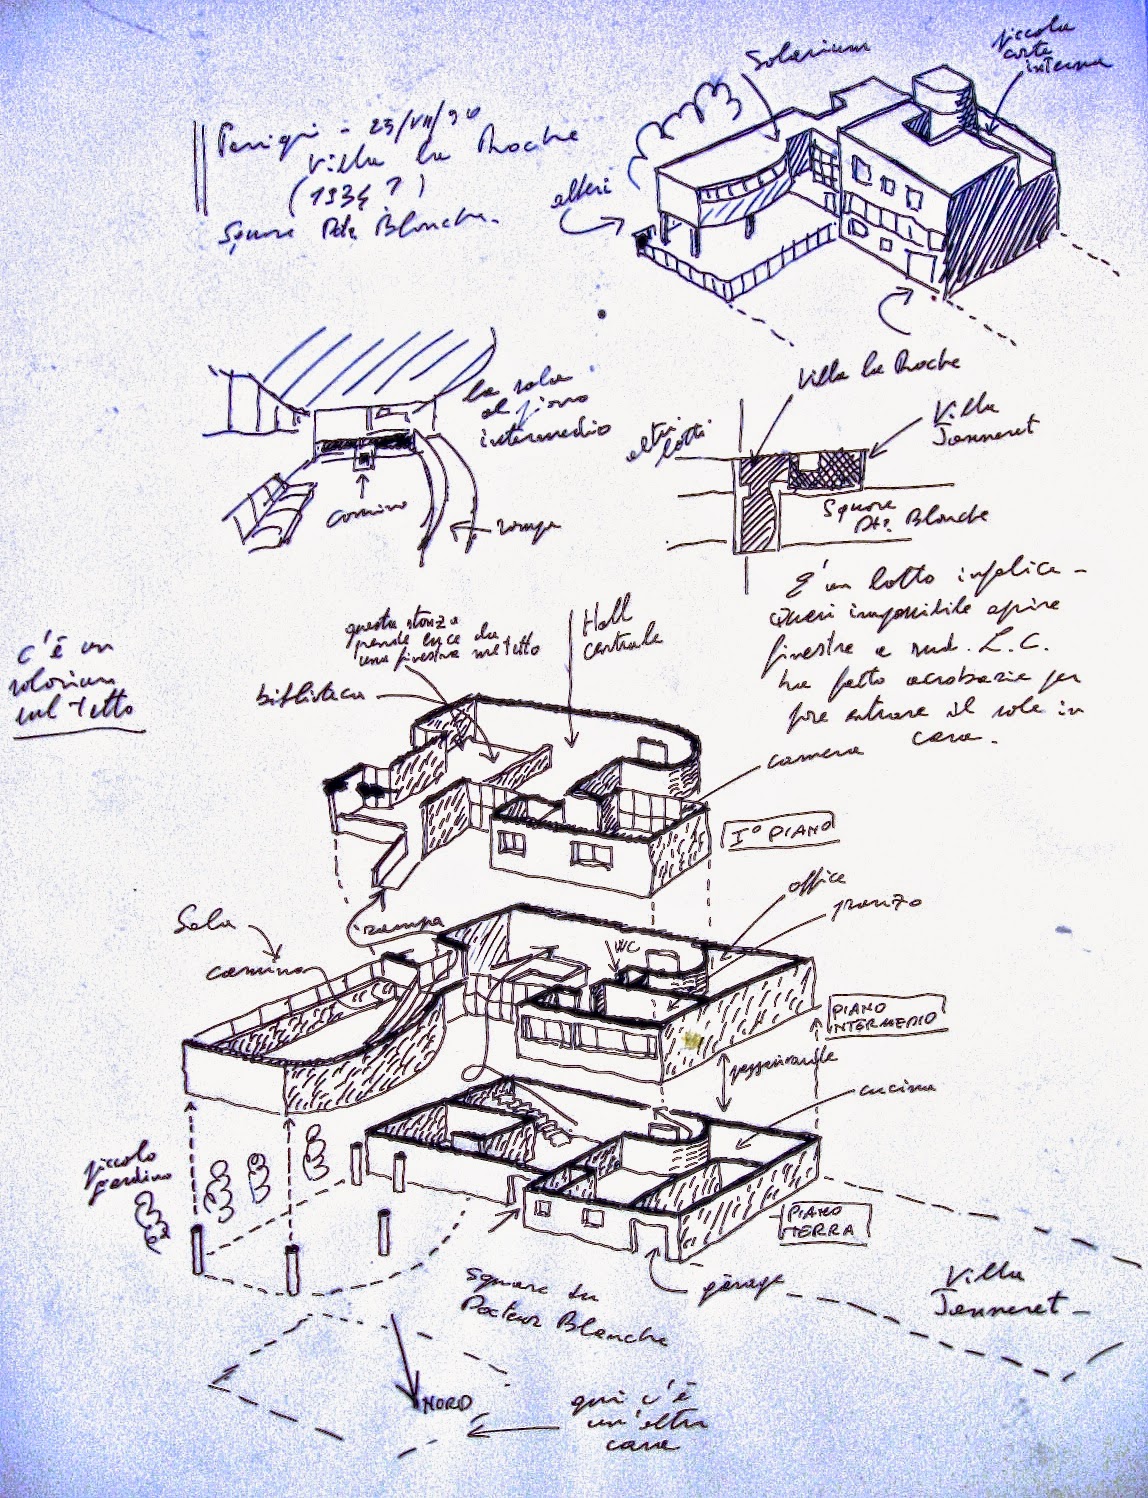 Parigi - 23/VII/90
Villa La Roche
(1924 ?)
Square Dr. Blanche.
Solarium
piccola
corte
interna
alberi
la sala
al piano
intermedio
camino
rampa
Villa La Roche
altri
lotti
Villa
Jeanneret
Square
Dr. Blanche
E' un lotto infelice -
Quasi impossibile aprire
finestre a sud. L.C.
ha fatto acrobazie per
fare entrare il sole in
casa.
c'è un
solarium
sul tetto
questa stanza
prende luce da
una finestra nel tetto
Hall
centrale
biblioteca
camera
I° PIANO
rampa
office
pranzo
Sala
camino
WC
PIANO
INTERMEDIO
passavivande
cucina
piccolo
giardino
PIANO
TERRA
garage
Square du
Docteur Blanche
Villa
Jeanneret -
NORD
qui c'è
un'altra
casa